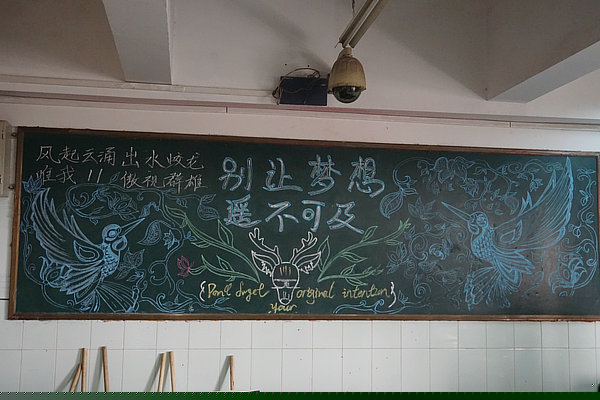 风起云涌 出水蛟龙
唯我 11 傲视群雄
别让梦想
遥不可及
{Don't forget original intention}
Your